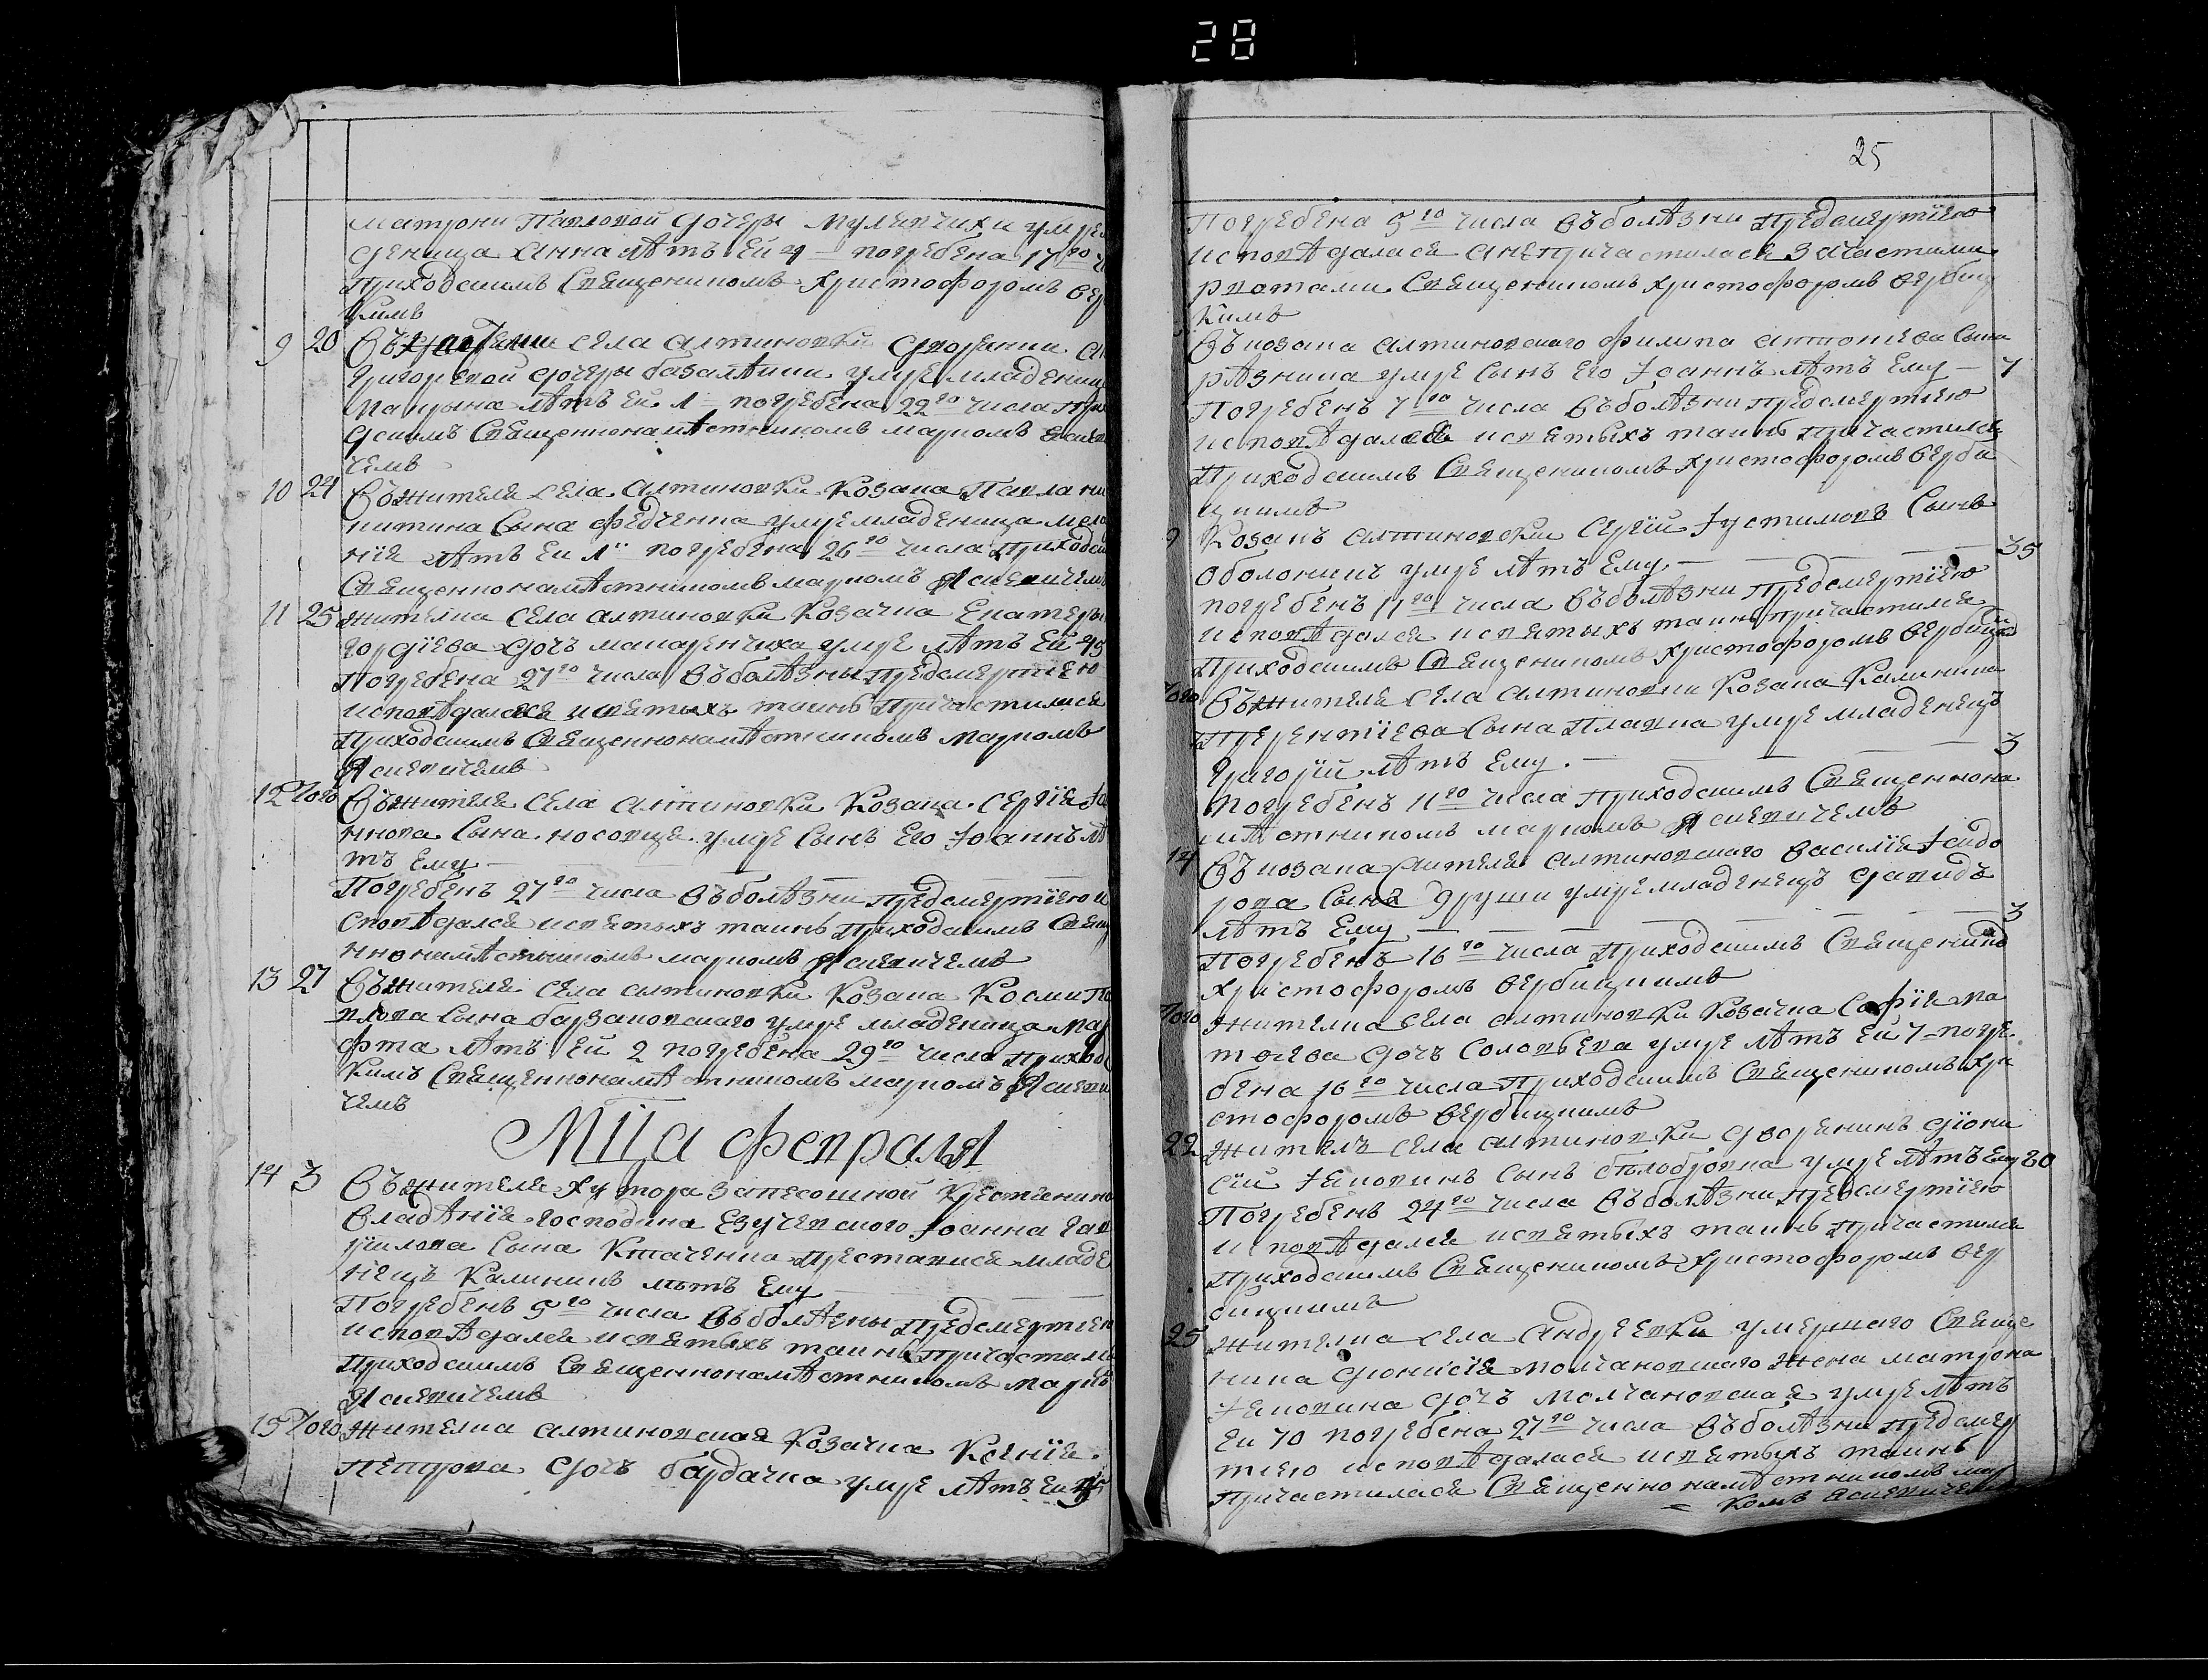 28
25
матрони Павловой дочеры
деница Анна лѣтъ ей 4 погребена 17го
приходскимъ Священникомъ Христофоромъ Вер
кимъ
9 20 села Алтиновки дворянки
Григоревой дочеры умре младениц
лѣтъ ей 1 погребена 22го числа при
дскимъ Священнонамѣстникомъ Маркомъ
чемъ
10 24 Въ жителя села Алтиновки Козака Павла ни
китина сына Федченка умре младеница мела
нїя лѣтъ ей 1 погребена 26го числа приходск
Священнонамѣстникомъ Маркомъ Ясневичемъ
11 25 жителка села Алтиновки Козачка Екатери
гордїева дочь макаренчиха умре лѣтъ ей 45
погребена 27го числа въ болѣзны предсмертнею
исповѣдалася и святыхъ таинъ причастилася
приходскимъ Священнонамѣстникомъ Маркомъ
Ясневичемъ
12 того Въ жителя села Алтиновки Козака Сергїя Іоа
ннова сына носовця умре сынъ его Іоаннъ лѣ
тъ ему
Погребенъ 27го числа въ болѣзни предсмертнею и
сповѣдался и святыхъ таинъ приходскимъ Свяще
ннонамѣстникомъ Маркомъ Ясневичемъ
13 27 Въ жителя села Алтиновки Козака Косми Па
влова сына умре младеница мар
фта лѣтъ ей 2 погребена 29го числа приходс
кимъ Священнонамѣстникомъ Маркомъ Ясневи
чемъ
Мца Февраля
14 3 Въ жителя хутора запесошной крестянина
владѣнїя господина Іоанна гав
рїилова сына Кталенка преставися младе
нецъ Калиникъ лѣтъ ему
Погребенъ 5го числа въ болѣзны предсмертнею
исповѣдался и святыхъ таинъ причастилс
приходскимъ Священнонамѣстникомъ Марко
Ясневичемъ
15 того Жителка алтиновская Козачка Ксенїя
петрова дочь бардачка умре лѣтъ ей
Погребена 5го числа въ болѣзни предсмертнею
исповѣдалася а непричастилася за частими
рвотами Священникомъ Христофоромъ Вербиц
кимъ
Въ козака алтиновского Филипа антонїева сына
рѣзника умре сынъ его Іоаннъ лѣтъ ему 7
Погребенъ 7го числа въ болѣзни предсмертнею
исповѣдался и святыхъ таинъ причастился
приходскимъ Священникомъ Христофоромъ Верби
цкимъ
9 Козакъ алтиновски Сергїй Іустимовъ сынъ
оболонникъ умре лѣтъ ему 35
погребенъ 11го числа въ болѣзни предсмертнею
исповѣдался и святыхъ таинъ причастился
приходскимъ Священникомъ Христофоромъ Вербицки
того Въ жителя села Алтиновки Козака Калиника
терентїева сына умре младенецъ
Григорїй лѣтъ ему 3
погребенъ 11го числа приходскимъ Священнона
мѣстникомъ Маркомъ Ясневичемъ
14 Въ козака жителя алтиновского Василїя Ісидо
рова сына Друши умре младенецъ Давидъ
лѣтъ ему 3
погребенъ 16го числа приходскимъ Священнико
Христофоромъ Вербицкимъ
того жителка села Алтиновки Козачка Софїя ма
тоеева дочь Соловьева умре лѣтъ ей 7 погре
бена 16го числа приходскимъ Священникомъ Хри
стофоромъ Вербицкимъ
22 житель села Алтиновки Дворянинъ Дїони
сїй Іяковинъ сынъ бѣлобровка умре лѣтъ ему 80
Погребенъ 24го числа въ болѣзни предсмертнею
исповѣдался и святыхъ таинъ причастился
приходскимъ Священникомъ Христофоромъ Вер
бицкимъ
25 жителка села Андреевки умершаго Священ
ника Дионисїя молчановского жена матрона
Іяковина дочь молчановская умре лѣтъ
ей 70 погребена 27го числа въ болѣзни предсмер
тнею исповѣдалася и святыхъ таинъ
причастилася Священнонамѣстникомъ Мар
комъ Ясневичемъ